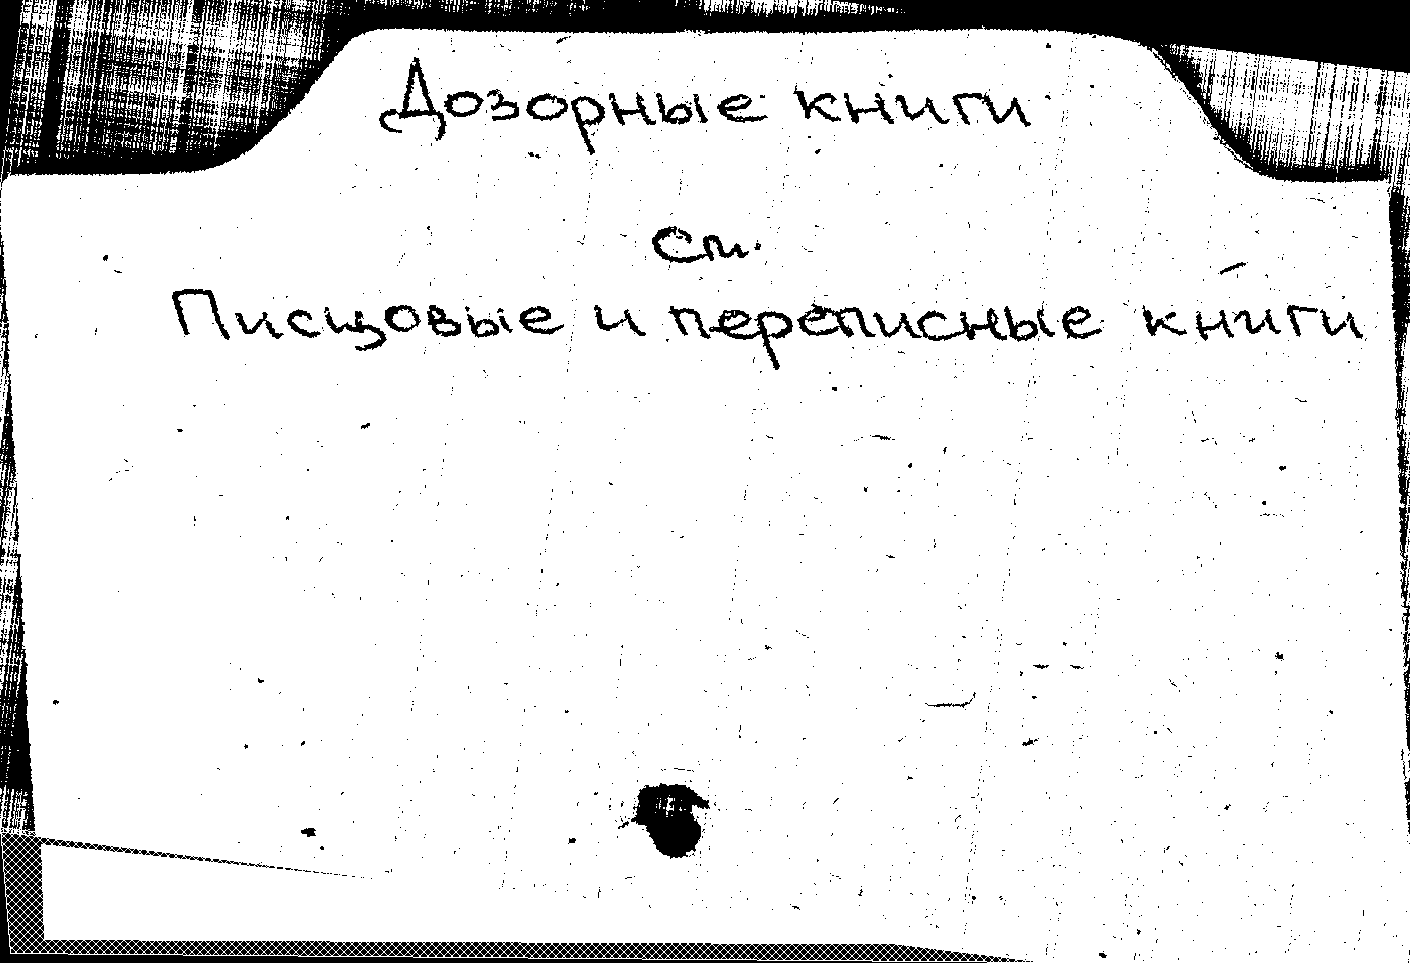 Дозорные книги
См.
Писцовые и переписные книги